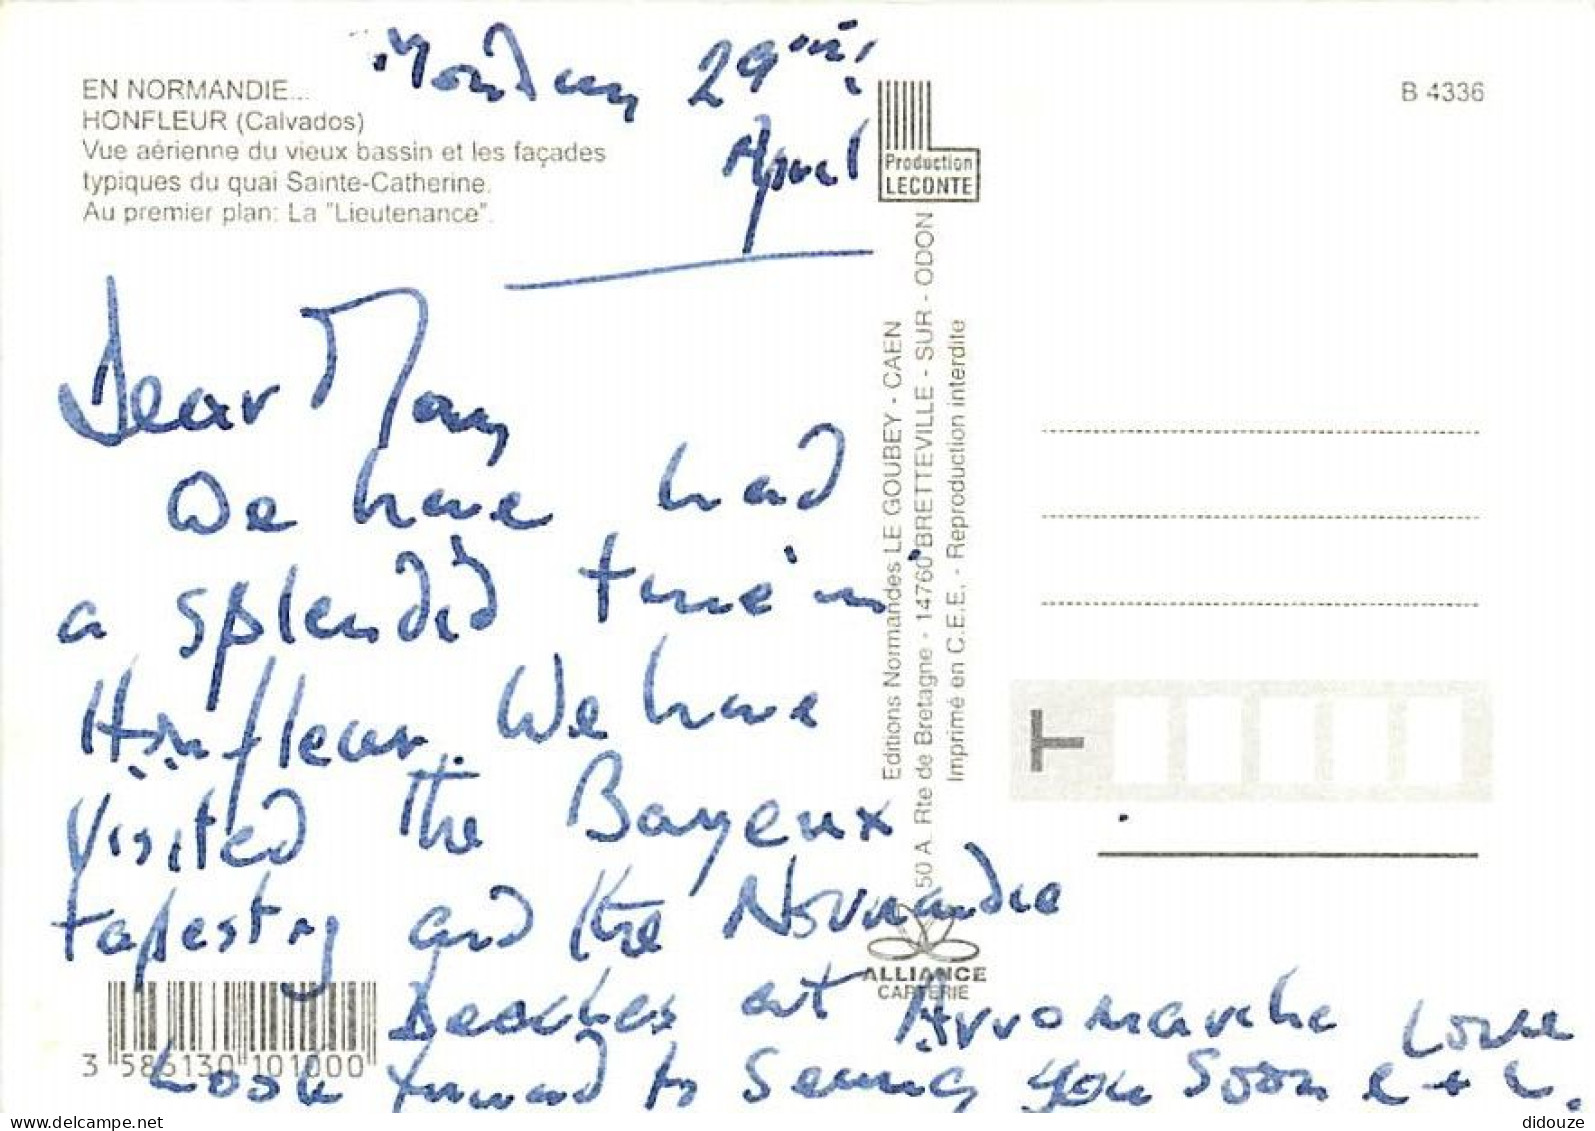 EN NORMANDIE...
HONFLEUR (Calvados)
Vue aérienne du vieux bassin et les façades
typiques du quai Sainte-Catherine.
Au premier plan: La "Lieutenance".
Monday 29
April
Dear Mary
We have had
a splendid time in
Honfleur. We have
Visited the Bayeux
tapestry and the Normandie
beaches at Arromanche Love
Look forward to seeing you soon
3 586130 101000
Production
LECONTE
Editions Normandes LE GOUBEY - CAEN
50 A. Rte de Bretagne - 14760 BRETTEVILLE - SUR - ODON
Imprimé en C.E.E. - Reproduction interdite
ALLIANCE
CARTERIE
B 4336
T
www.delcampe.net
didouze